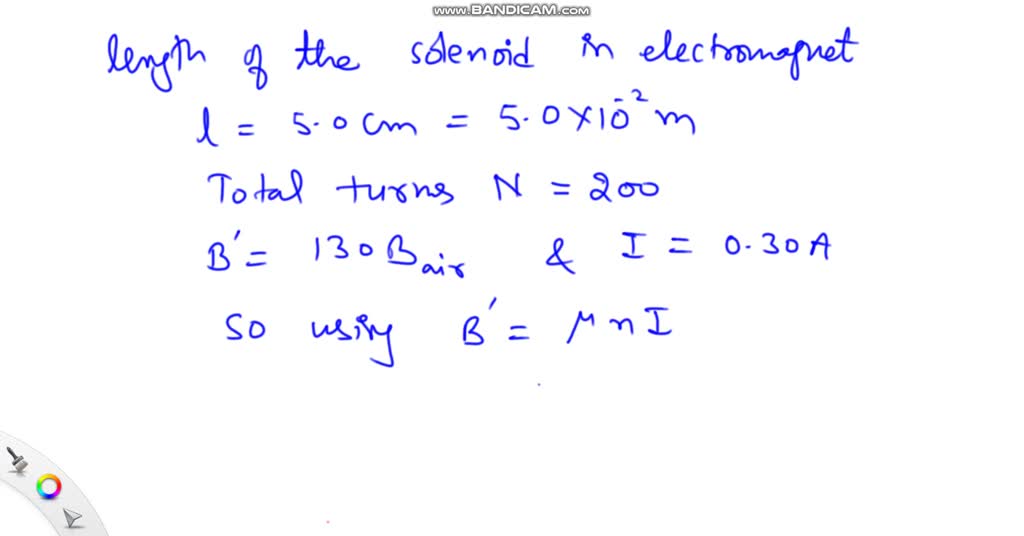 www.BANDICAM.com
length of the solenoid in electromagnet
l = 5.0 cm = 5.0 × 10⁻² m
Total turns N = 200
B' = 130 Bair & I = 0.30 A
So using B' = μ n I